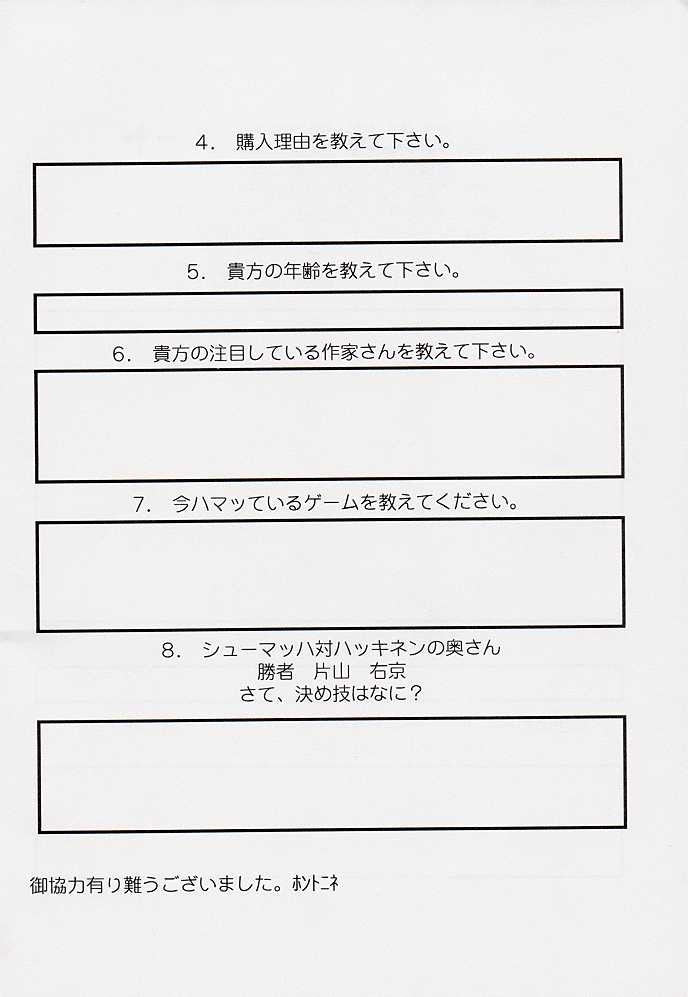 4． 購入理由を教えて下さい。
5． 貴方の年齢を教えて下さい。
6． 貴方の注目している作家さんを教えて下さい。
7． 今ハマッているゲームを教えてください。
8． シューマッハ対ハッキネンの奥さん
勝者　片山　右京
さて、決め技はなに？
御協力有り難うございました。ﾎﾝﾄﾆﾈ